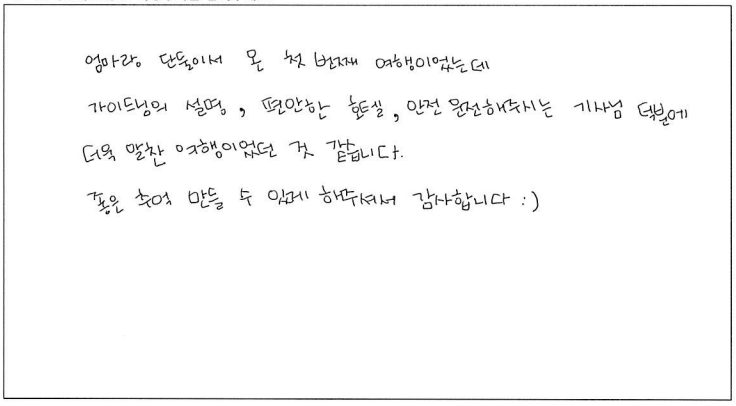 엄마랑 단둘이서 온 첫 번째 여행이었는데
가이드님의 설명, 편안한 호텔, 안전 운전해주시는 기사님 덕분에
더욱 알찬 여행이었던 것 같습니다.
좋은 추억 만들 수 있게 해주셔서 감사합니다 :)